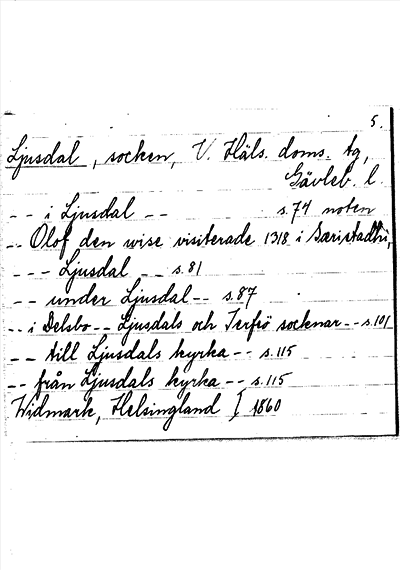 5.
Ljusdal, socken, V. Häls. doms. tg,
Gävleb. l.
-- i Ljusdal -- s.74 noten
-- Olof den wise visiterade 1318 i
--- Ljusdal -- s.81
-- under Ljusdal -- s.87
-- i Delsbo -- Ljusdals och Jerfsö socknar -- s.101
-- till Ljusdals kyrka -- s.115
-- från Ljusdals kyrka -- s.115
Widmark, Helsingland I 1860